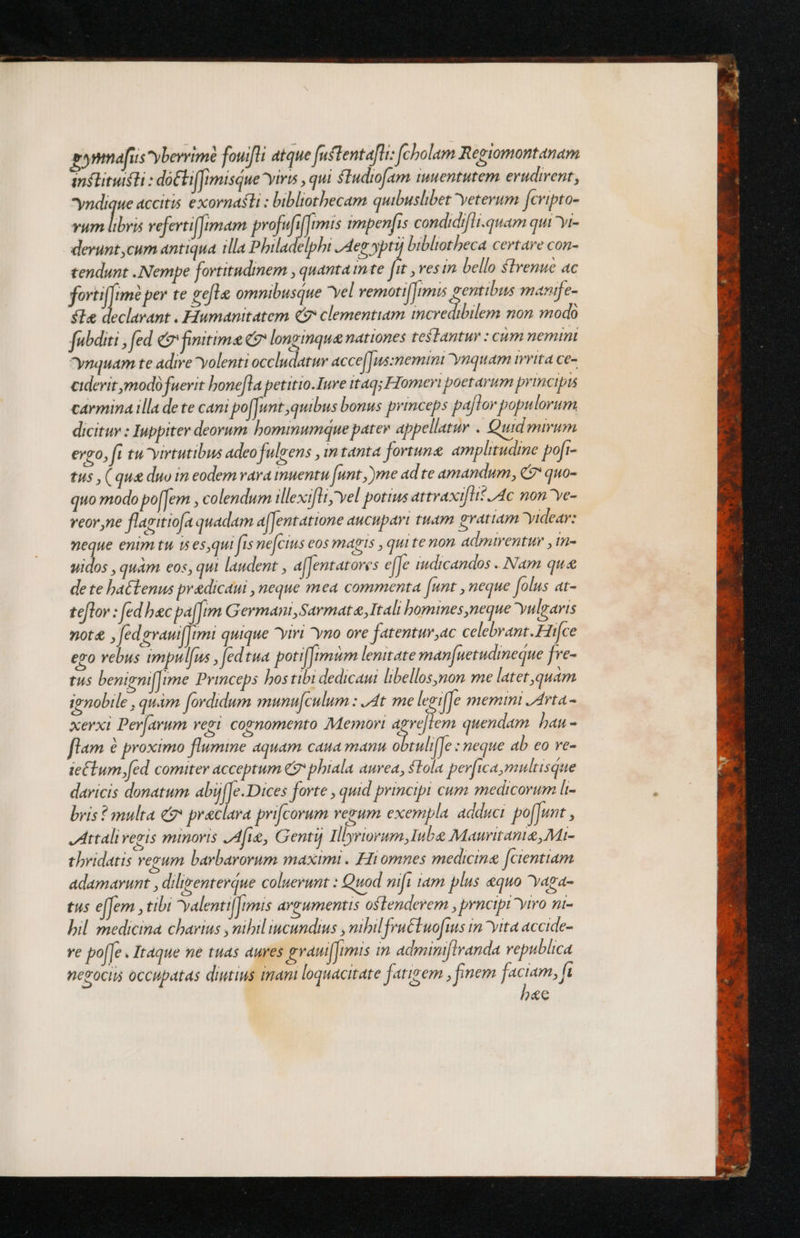 gymnasiis vberrimè fouisti atque sustentasti: scholam Regiomontanam
instituisti: doctissimisque viris, qui studiosam iuuentutem erudirent,
vndique accitis exornasti: bibliothecam quibuslibet veterum scripto-
rum libris refertissimam profusissimis impensis condidisti. quam qui vi-
derunt, cum antiqua illa Philadelphi Aegyptij bibliotheca certare con-
tendunt. Nempe fortitudinem, quanta in te sit, res in bello strenuè ac
fortissimè per te gestæ omnibusque vel remotissimis gentibus manife-
stæ declarant. Humanitatem & clementiam incredibilem non modò
subditi, sed & finitimæ & longinquæ nationes testantur: cùm nemini
vnquam te adire volenti occludatur accessus: nemini vnquam irrita ce-
ciderit, modò fuerit honesta petitio. Iure itaq; Homeri poetarum principis
carmina illa de te cani possunt, quibus bonus princeps pastor populorum
dicitur: Iuppiter deorum hominumque pater appellatur. Quid mirum
ergo, si tu virtutibus adeo fulgens, in tanta fortunæ amplitudine posi-
tus, (quæ duo in eodem rara inuentu sunt,) me ad te amandum, & quo-
quo modo possem, colendum illexisti, vel potius attraxisti? Ac non ve-
reor, ne flagitiosa quadam assentatione aucupari tuam gratiam videar:
neque enim tu is es, qui sis nescius eos magis, qui te non admirentur, in-
uidos, quàm eos, qui laudent, assentatores esse iudicandos. Nam quæ
de te hactenus prædicaui, neque mea commenta sunt, neque solus at-
testor: sed hæc passim Germani, Sarmatæ, Itali homines, neque vulgaris
notæ, sed grauissimi quique viri vno ore fatentur, ac celebrant. Hisce
ego rebus impulsus, sed tua potissimùm lenitate mansuetudineque fre-
tus benignissime Princeps hos tibi dedicaui libellos, non me latet, quàm
ignobile, quàm sordidum munusculum: At me legisse memini Arta-
xerxi Persarum regi cognomento Memori agrestem quendam hau-
stam è proximo flumine aquam caua manu obtulisse: neque ab eo re-
iectum, sed comiter acceptum & phiala aurea, stola persica, multisque
daricis donatum abijsse. Dices forte, quid principi cum medicorum li-
bris? multa & præclara priscorum regum exempla adduci possunt,
Attali regis minoris Asiæ, Gentij Illyriorum, Iubæ Mauritaniæ, Mi-
thridatis regum barbarorum maximi. Hi omnes medicinæ scientiam
adamarunt, diligenterque coluerunt: Quod nisi iam plus æquo vaga-
tus essem, tibi valentissimis argumentis ostenderem, prncipi viro ni-
hil medicina charius, nihil iucundius, nihil fructuosius in vita accide-
re posse. Itaque ne tuas aures grauissimis in administranda republica
negociis occupatas diutius inani loquacitate fatigem, finem faciam, si
hæc